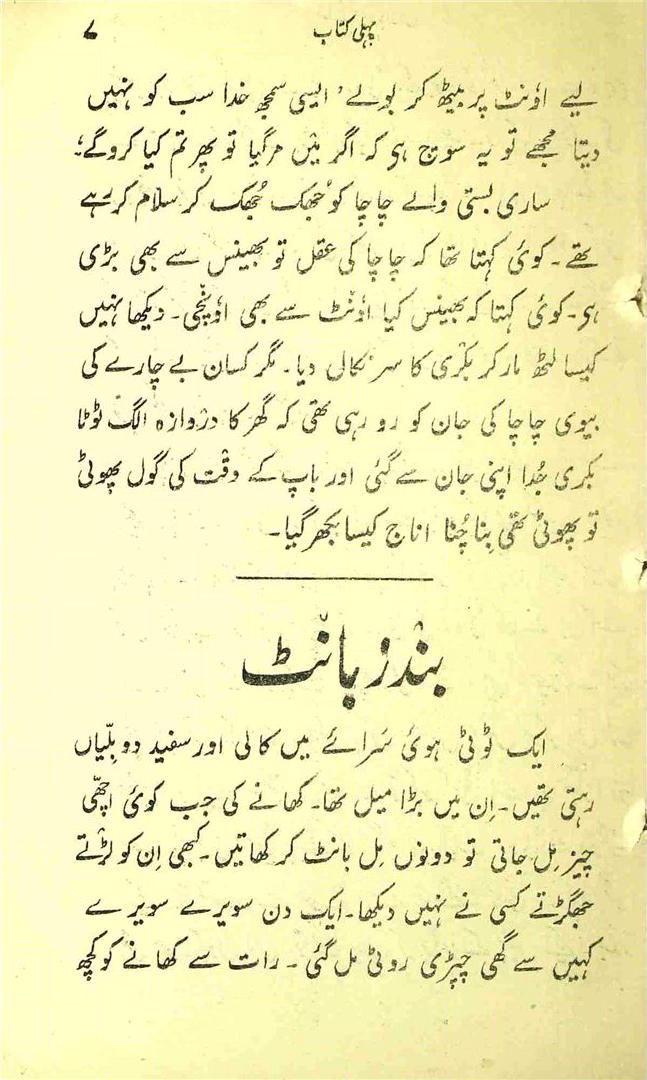 پہلی کتاب ۷
لیے اونٹ پر بیٹھ کر بولے، ایسی سمجھ خدا سب کو نہیں
دیتا مجھے تو یہ سوچ ہی کہ اگر میں مرگیا تو پھر تم کیا کروگے؛
ساری بستی والے چاچا کو جُھک جُھک کر سلام کررہے
تھے۔ کوئی کہتا تھا کہ چاچا کی عقل تو بھینس سے بھی بڑی
ہی۔ کوئی کہتا کہ بھینس کیا اونٹ سے بھی اونچی۔ دیکھا نہیں
کیسا لٹھ مار کر بکری کا سر نکال دیا۔ مگر کسان بے چارے کی
بیوی چاچا کی جان کو رو رہی تھی کہ گھر کا دروازہ الگ ٹوٹا
بکری جُدا اپنی جان سے گئی اور باپ کے وقت کی گول پھوٹی
تو پھوٹی تھی بِنا چُنا اناج کیسا بکھر گیا۔
بندر بانٹ
ایک ٹوٹی ہوئی سَرائے میں کالی اور سفید دو بلّیاں
رہتی تھیں۔ اِن میں بڑا میل تھا۔ کھانے کی جب کوئی اچھّی
چیز مِل جاتی تو دونوں مِل بانٹ کر کھاتیں۔ کبھی اِن کو لڑتے
جھگڑتے کسی نے نہیں دیکھا۔ ایک دن سویرے سویرے
کہیں سے گھی چپڑی روٹی مل گئی۔ رات سے کھانے کو کچھ